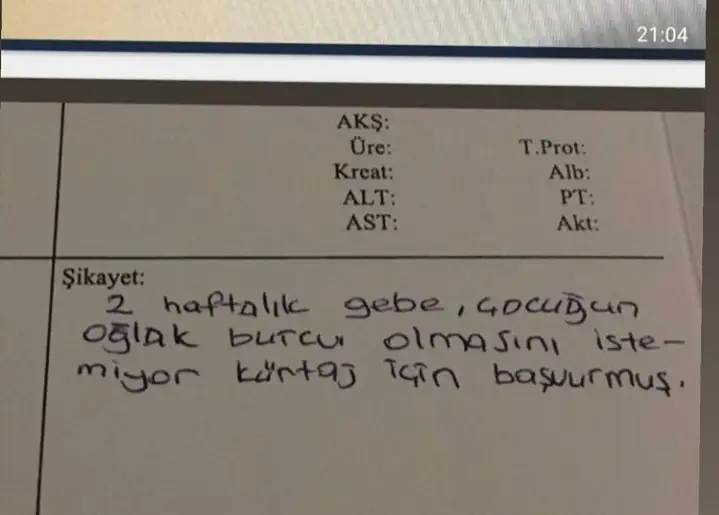 21:04
AKŞ:
Üre: T.Prot:
Kreat: Alb:
ALT: PT:
AST: Akt:
Şikayet:
2 haftalık gebe, çocuğun
oğlak burcu olmasını iste-
miyor kürtaj için başvurmuş.